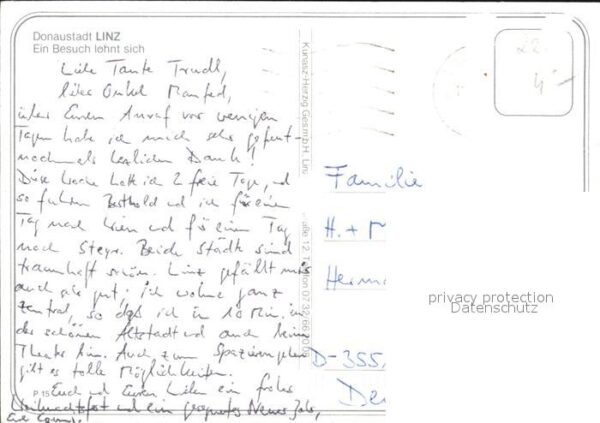 Donaustadt LINZ
Ein Besuch lohnt sich
Liebe Tante Trudl,
lieber Onkel Manfred,
über Euren Anruf vor wenigen
Tagen habe ich mich sehr gefreut -
nochmals herzlichen Dank!
Diese Woche hatte ich 2 freie Tage, und
so fuhren Berthold und ich für ein
Tag nach Wien und für ein Tag
nach Steyr. Beide Städte sind
traumhaft schön. Linz gefällt mir
auch sehr gut; ich wohne ganz
zentral, so daß ich in 10 Min. in
der schönen Altstadt und auch beim
Theater bin. Auch zum Spazierengehen
gibt es tolle Möglichkeiten.
P 15 Euch und Euren Lieben ein frohes
Weihnachtsfest und ein gesegnetes Neues Jahr,
Eure
Kunasz-Herzog Ges.m.b.H. Linz
Familie
H. + M
Herm
D-355
De
privacy protection
Datenschutz